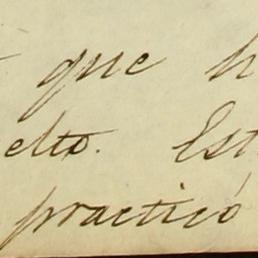 que h
elto. Est
practicó